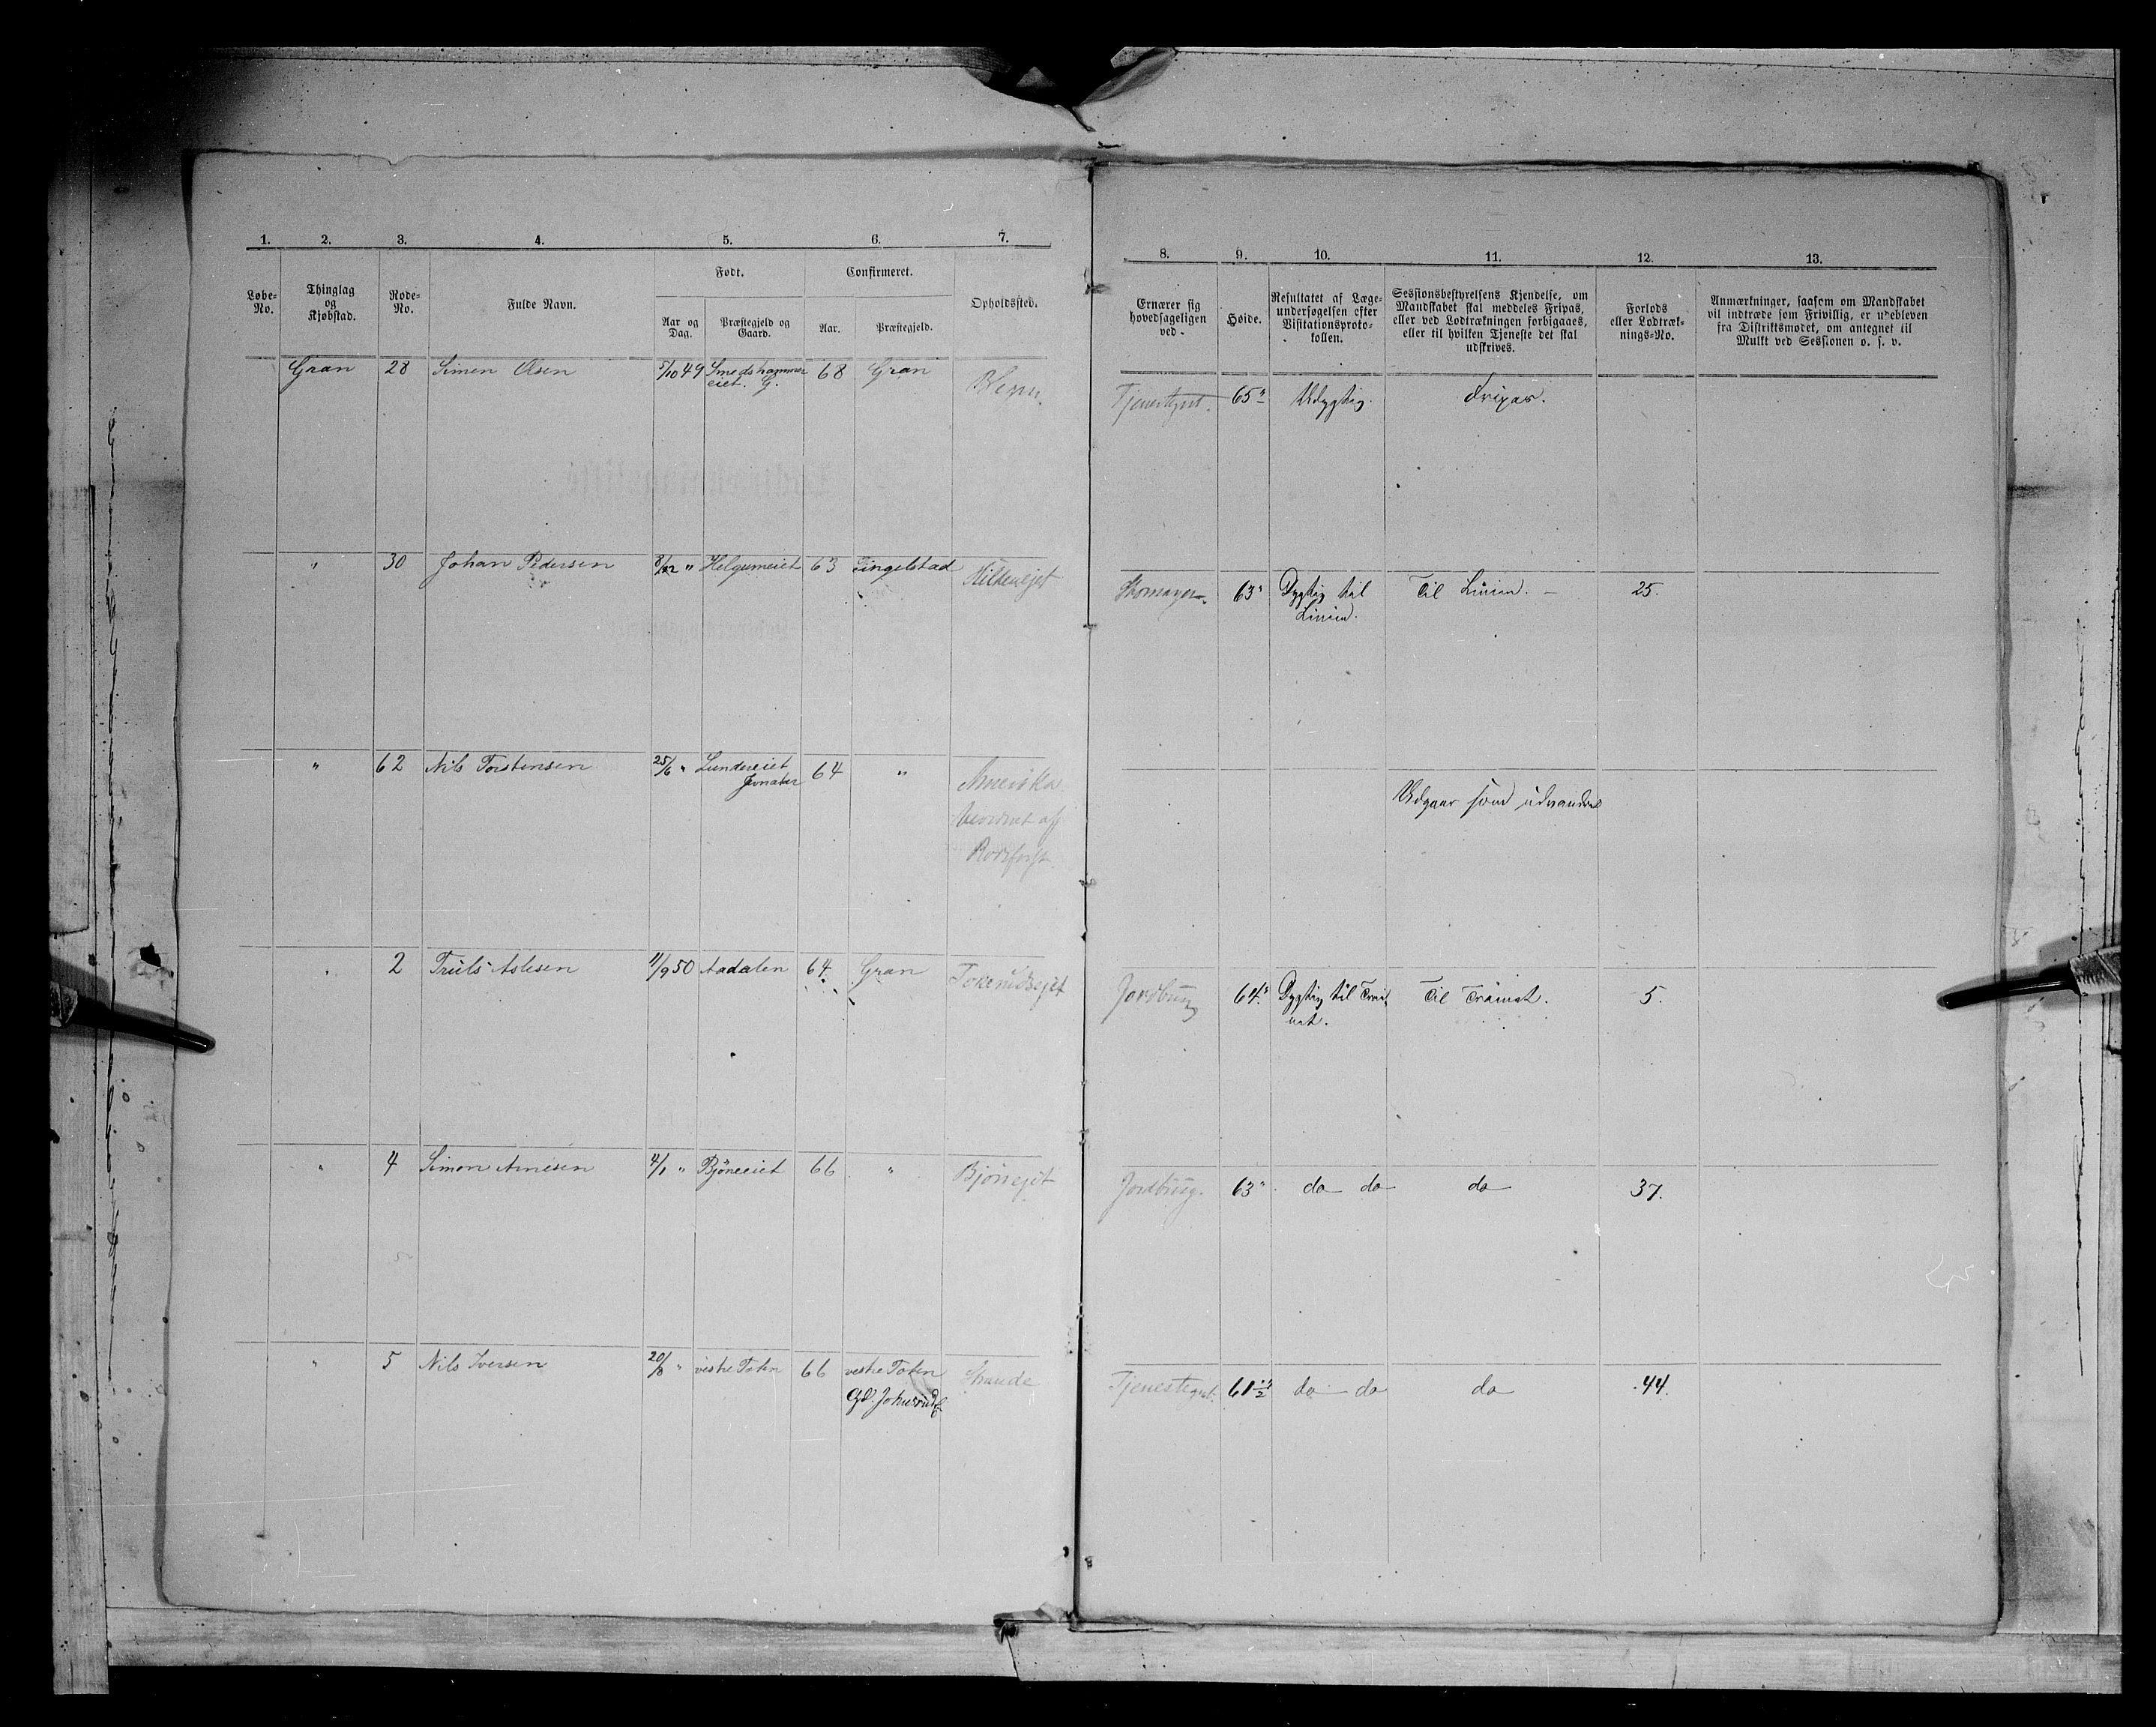 1. 2. 3. 4. 5. 6. 7.
Løbe-No. Thinglag og Kjøbstad. Rode-No. Fulde Navn. Født. Aar og Dag. Præstegjeld og Gaard. Confirmeret. Aar. Præstegjeld. Opholdssted.
Gran 28 Simen Olsen 5/10 49 Smedshammer 68 Gran
eiet. G.
" 30 Johan Pedersen Helgumeiet 63 Tingelstad
" 62 Nils Torstensen 25/6 " Lundereiet 64 " Amerika
Jevnaker
2 Truls Aslesen 11/9 50 Aadalen 64. Gran
" 4 Simon Arnesen 4/1 " Bjøneeiet 66 " Bjønejet
" 5 Nils Iversen 20/8 " vestre Toten 66 vestre Toten
8. 9. 10. 11. 12. 13.
Ernærer sig hovedsageligen ved. Høide. Resultatet af Læge-undersøgelsen efter Visitationsproto-kollen. Sessionsbestyrelsens Kjendelse, om Mandskabet skal meddeles Fripas, eller ved Lodtrækningen forbigaaes, eller til hvilken Tjeneste det skal udskrives. Forlods eller Lodtræk-nings-No. Anmærkninger, saasom om Mandskabet vil indtræde som Frivillig, er udebleven fra Distriktsmødet, om antegnet til Mulkt ved Sessionen o. s. v.
65" Udygtig. Fripas.
63" Dygtig til Til Linien. 25.
Linien.
Udgaar som udvandret
Jordbrug 64" 5.
Jordbrug. 63" do do do 37.
Tjenestegut. 61½" do do do 44.